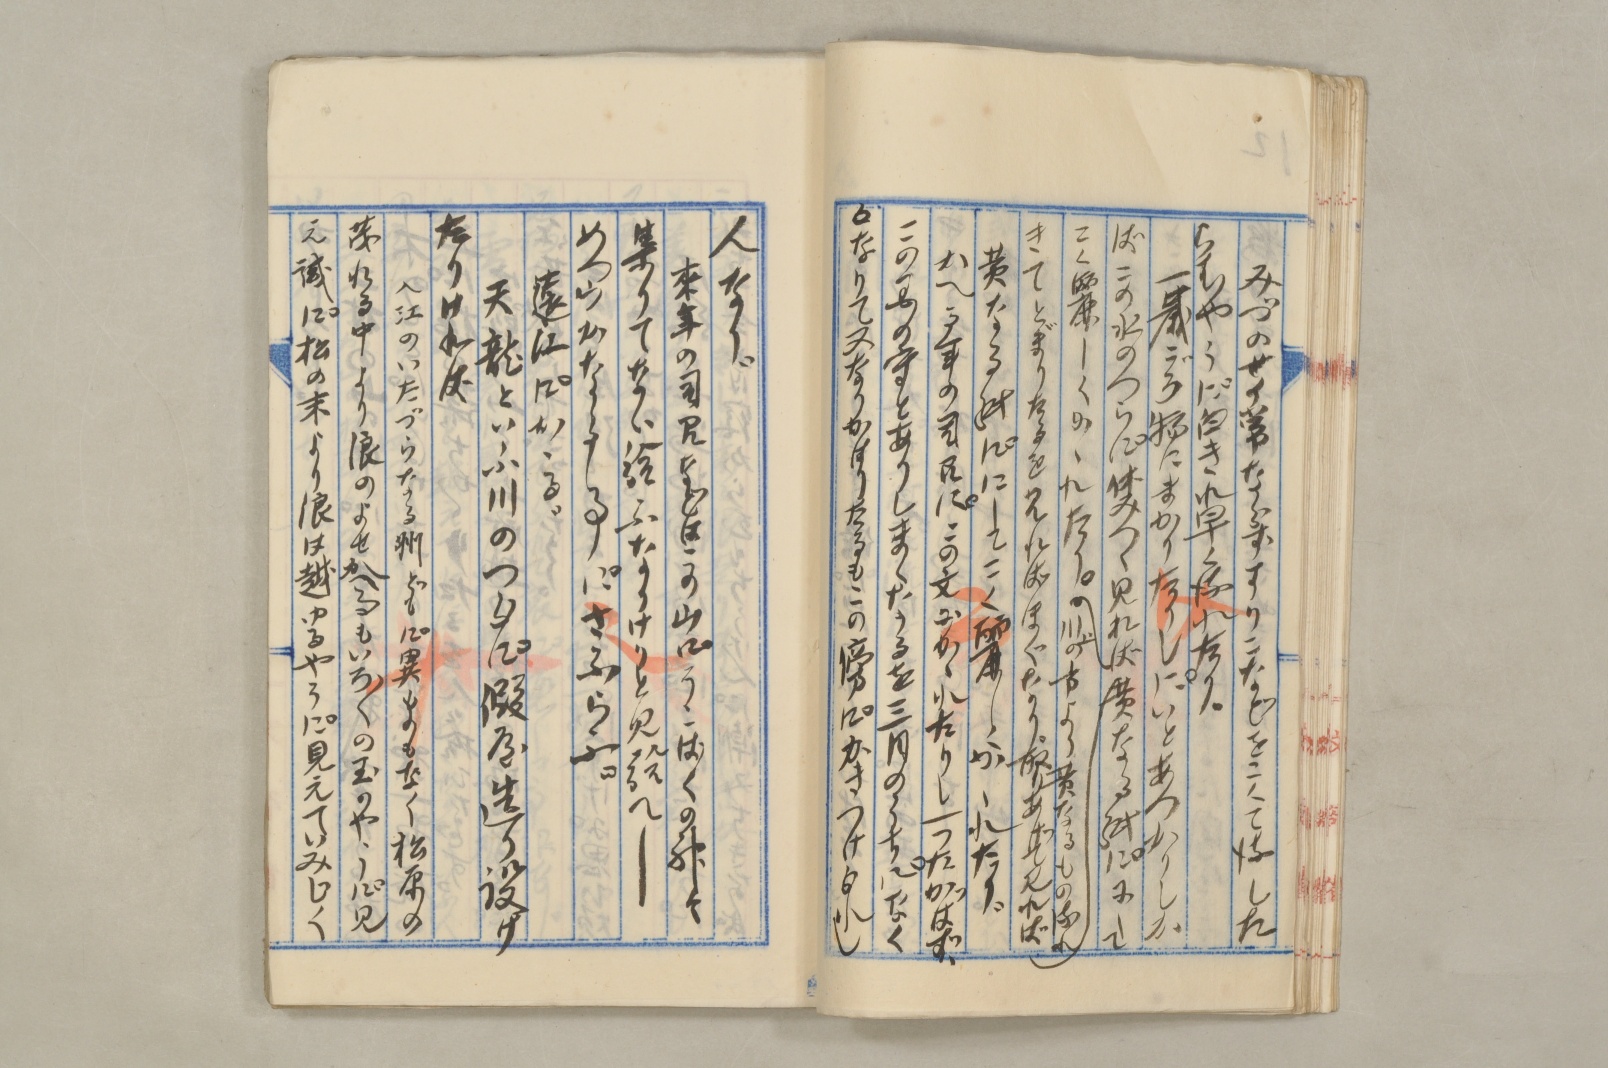 みづの世の常ならずすりこなどをこくて流した
らむやうに白き水早く流れたり。
一歳ごろ物にまかりたりしにいとあつかりしか
ばこの水のつらに休みつゝ見れば黄なる紙ににして
こく麗しくかゝれたり。の川の方より黄なるもの流れ
きてとゞまりたるを見ればほぐなり、取りあげて見れば
黄なる紙ににしてこく麗しくかゝれたり。
かへる年の司召に、この文にかゝれたりし一つたがはず、
この国の守とありしまゝなるを三月のうちになく
なりて又なりかはりたるもこの傍にかきつけられし
人なり。
来年の司召などはこの山にそこばくの神々
集りてない給ふなりけりと見給へし
めづらかなることにさぶらふ。
遠江にかゝる。
天龍といふ川のつらに假屋造り設け
たりければ
入江のいたづらなる州どもに異ものもなく松原の
茂れる中より浪のよせかへるもいろ〱の玉のやうに見
え誠に松の末より浪は越ゆるやうに見えていみじく